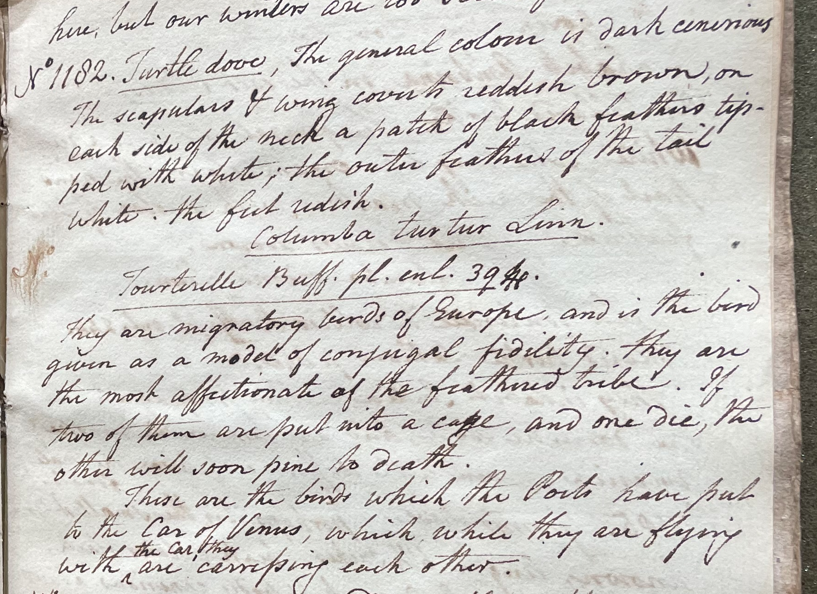 here, but our winters are too
No 1182. Turtle dove, The general colour is dark cenerious
The scapulars & wing coverts reddish brown, on
each side of the neck a patch of black feathers tip-
ped with white; the outer feathers of the tail
white. the feet redish.
Columba turtur Linn.
Tourterelle Buff. pl. enl. 394.
They are migratory birds of Europe, and is the bird
given as a model of conjugal fidility. they are
the most affectionate of the feathered tribe. If
two of them are put into a cage, and one die, the
other will soon pine to death.
These are the birds which the Poets have put
to the Car of Venus, which while they are flying
with the Car, they are carressing each other